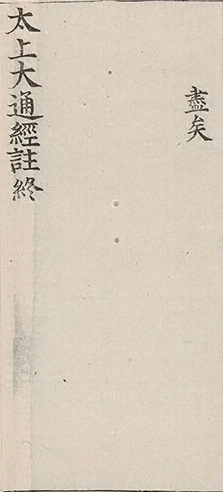 盡矣
太上大通經註終